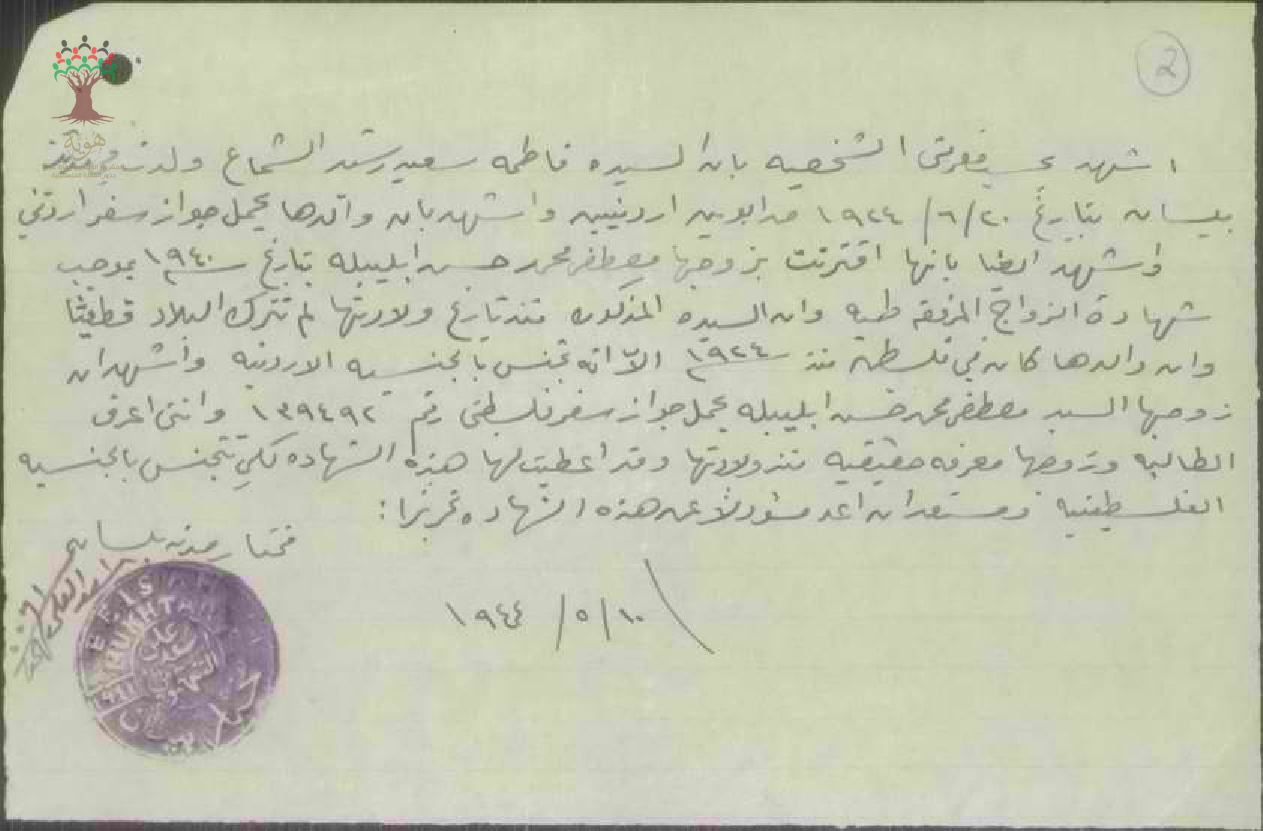 2
هوية
اشهد حسب معرفتي الشخصيه بان السيده فاطمه سعيد رشيد الشماع ولدت في مدينة
بيسان بتاريخ ٢٠/ ٦/ ١٩٢٤ من ابوين اردنيين واشهد بان والدها يحمل جواز سفر اردني
واشهد ايضا بانها اقترنت بزوجها مصطفى محمد حسن ابليبله بتاريخ سنة ١٩٤٠م بموجب
شهادة الزواج المرفقه طيه وان السيده المذكوره منذ تاريخ ولادتها لم تترك البلاد قطعيا
وان والدها كان في فلسطين منذ سنة ١٩٢٤م الا انه تجنس بالجنسيه الاردنيه واشهد ان
زوجها السيد مصطفى محمد حسن ابليبله يحمل جواز سفر فلسطيني رقم ١٣٩٤٩٢ وانني اعرف
الطالبه وزوجها معرفه حقيقيه منذ ولادتها وقد اعطيت لها هذه الشهاده لكي تتجنس بالجنسيه
الفلسطينيه ومستعد ان اعد مسؤولا عن هذه الشهاده تحريرا:
مختار مدينة بيسان
١٠/ ٥/ ١٩٤٤
BEISAN
MUKHTAR
مختار بيسان